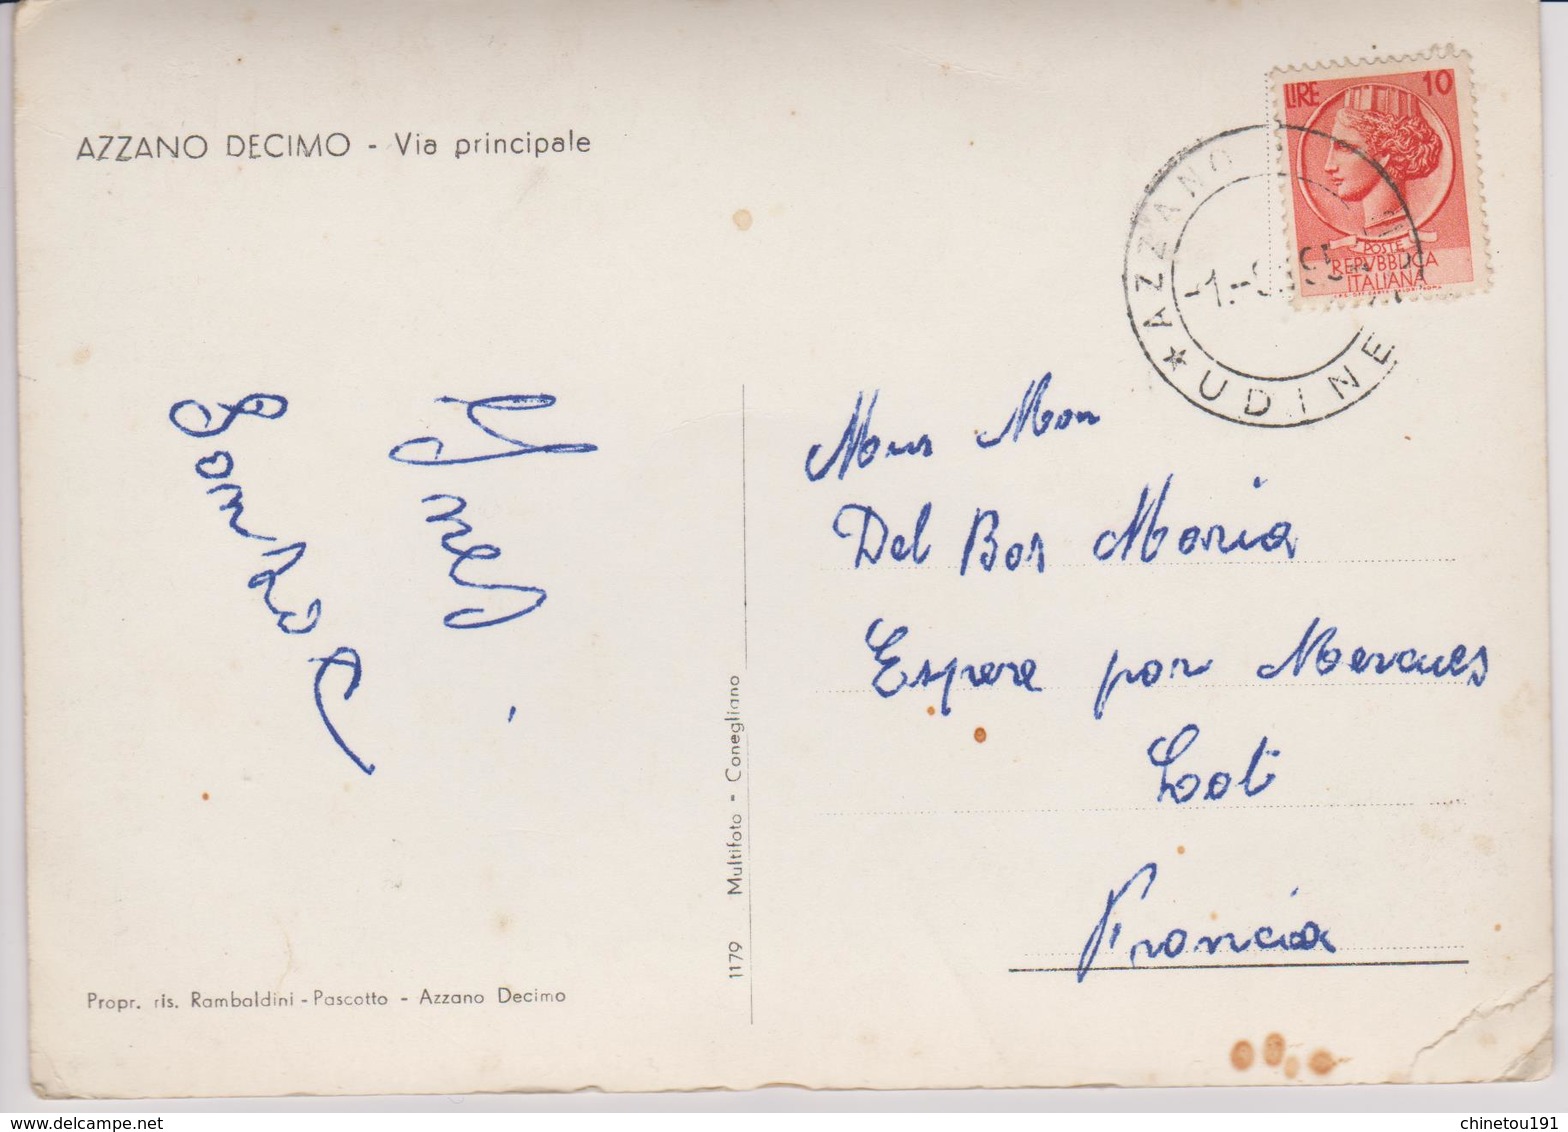 AZZANO DECIMO - Via principale
LIRE 10
POSTE
REPVBBLICA
ITALIANA
AZZANO
★ UDINE
Ynes
Del Bos Maria
Espere par Mercues
Lot
Francia
1179 Multifoto - Conegliano
Propr. ris. Rambaldini - Pascotto - Azzano Decimo
chinetou191